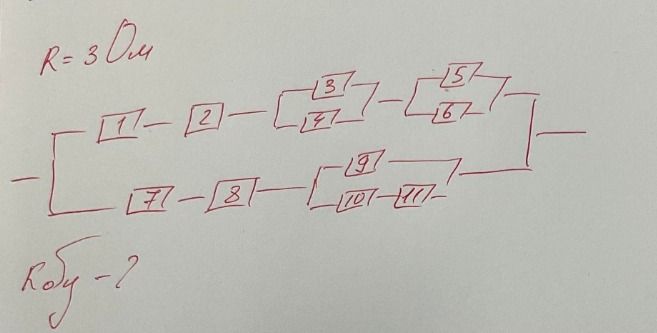 R = 3 Ом
3 5
1 2 4 6
9
7 8 10 11
Rобщ - ?